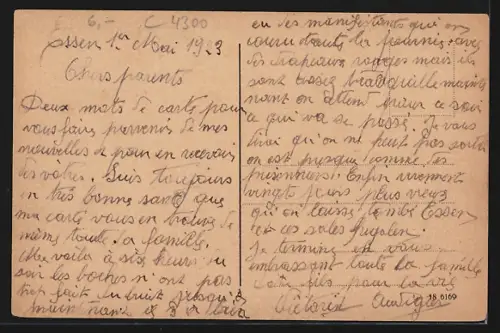 6,- C 4300
Essen 1er Mai 1923
Chers parents
Deux mots de carte pour
vous faire parvenir de mes
nouvelles et pour en recevoir
des vôtres. Suis toujours
en très bonne santé que
ma carte vous en trouve de
même toute la famille.
Me voila à six heures du
soir les boches n'ont pas
fait du bruit jusqu'à
maintenant
eu des manifestants qui on
couru toute la journée avec
des drapeaux rouges mais ils
sont assez tranquille mainte
nant on attend ce soir
ce qui va se passé. Je vous
dirai qu'on ne peut pas sortir
on est presque comme les
prisonniers. Enfin vivement
vingt jours plus vieux
qu'on laisse tombé Essen
ce sales
Je termine en vous
embrassant toute la famille
fils pour la vie
18 6169